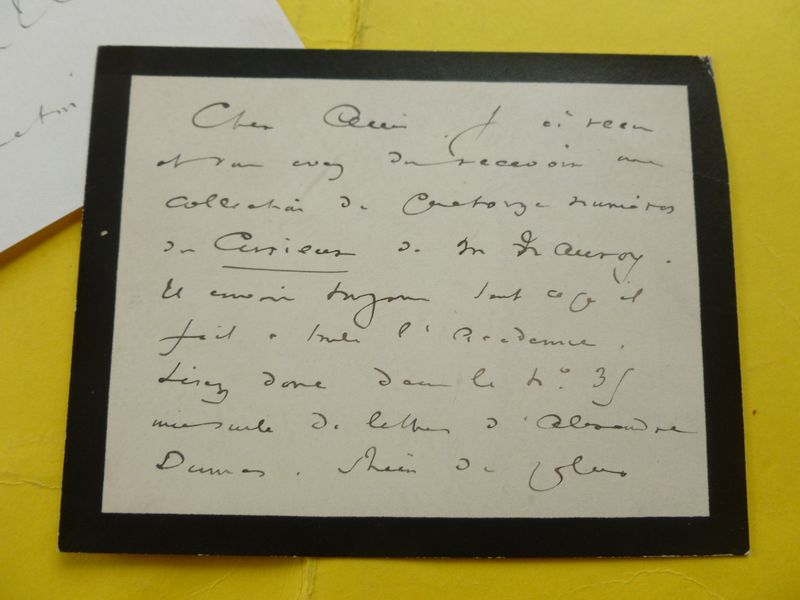 Cher Ami. J'ai reçu
et vous avez dû recevoir une
collection de quatorze numéros
du Curieux de Mr Nauroy.
Il envoie toujours tout ce qu'il
fait à toute l'Académie.
Lisez donc dans le No. 35
une suite de lettres d'Alexandre
Dumas. Rien de plus